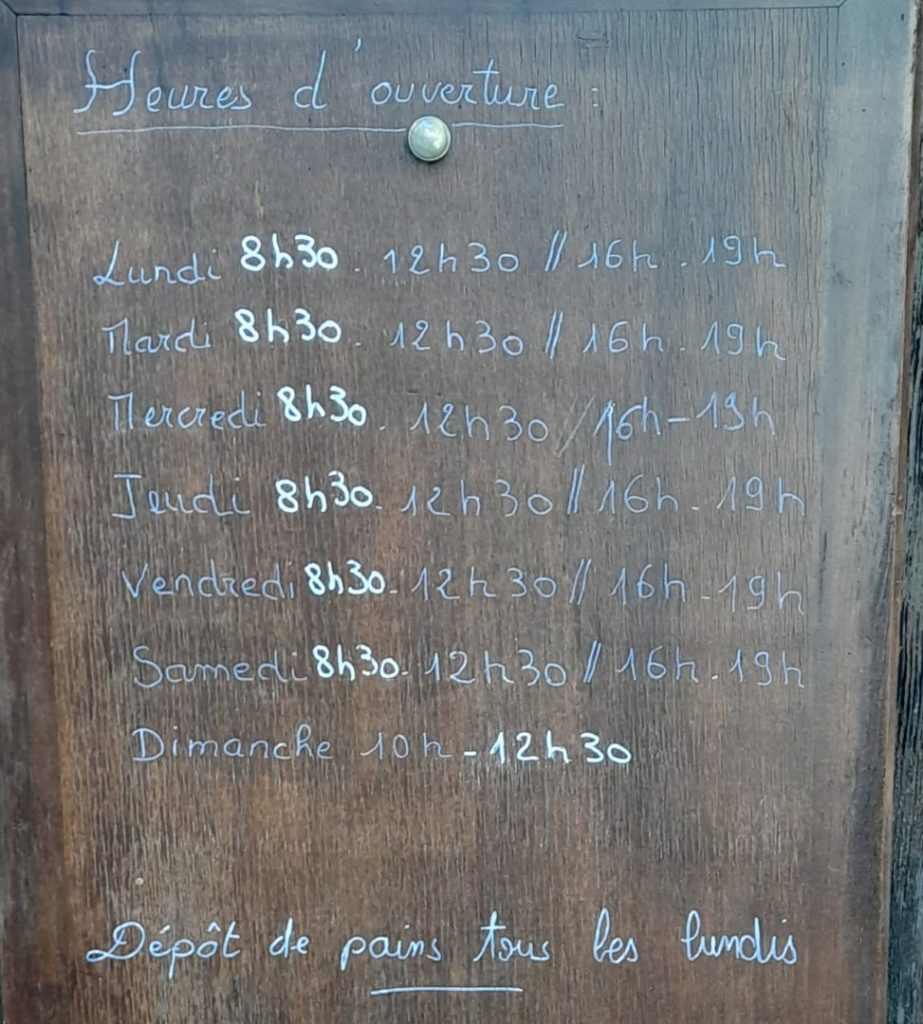 Heures d'ouverture :
Lundi 8h30. 12h30 // 16h. 19h
Mardi 8h30. 12h30 // 16h. 19h
Mercredi 8h30. 12h30 // 16h-19h
Jeudi 8h30. 12h30 // 16h. 19h
Vendredi 8h30. 12h30 // 16h. 19h
Samedi 8h30. 12h30 // 16h. 19h
Dimanche 10h-12h30
Dépôt de pains tous les lundis